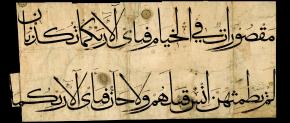 مقصورات في الخيام فباى الا ربكما تكذبان
لم يطمثهن انس قبلهم ولا جان فباى الا ربكما